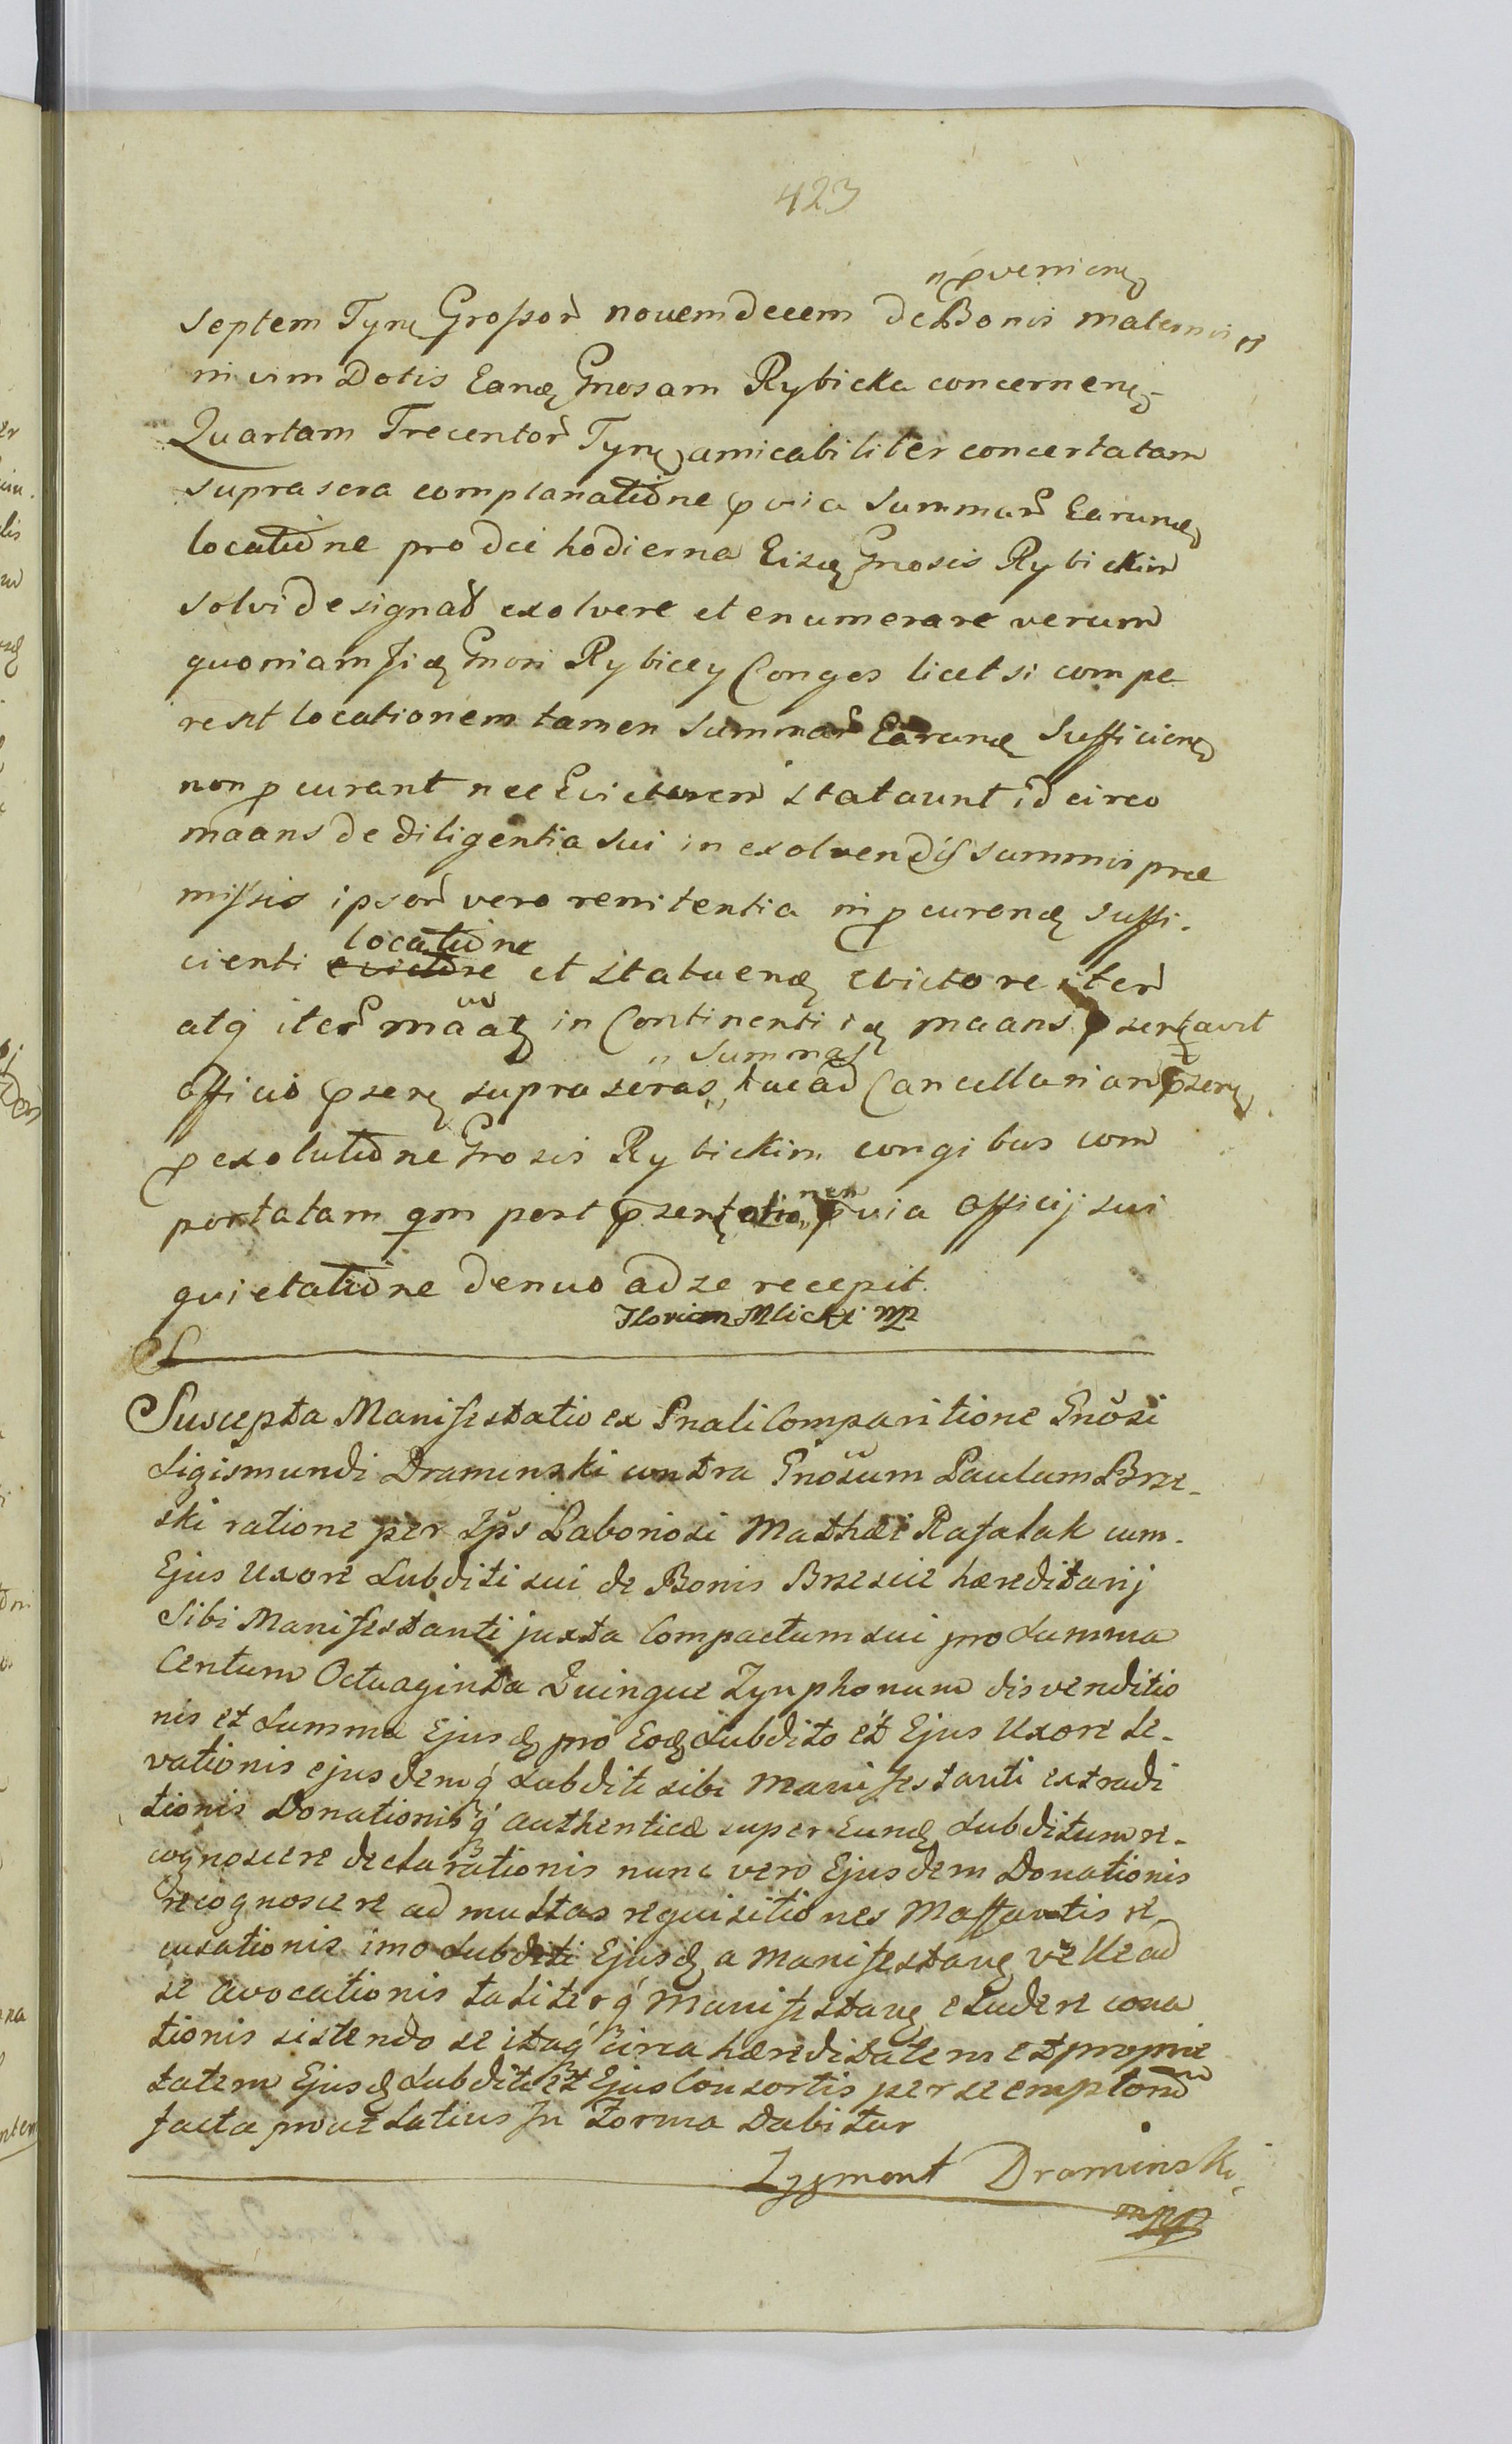 423
proveniens
septem Tyn Grossor novemdecem de Bonis maternis et
in vim Dotis Eand Gnosam Rybicka concernens
Quartam Trecentor Tyn amicabiliter concertatam
suprascra complanatione pvia Summar Earund
locatione pro die hodierna Eisd Gnosis Rybickim
solvi designat exolvere et enumerare verum
quoniam Iid Gnosi Rybiccy Conges licet si compe
rest locationem tamen Summar Earund Sufficien
non pcurant nec Evictorem Statuunt id circo
maans de diligentia sui in exolvendis summis prae
missis ipsor vero renitentia in pcurend suffi.
locatione
cienti evictore et statuend evictore iter
atq iter maat in Continenti id maans psentavit
Summas
officio psen suprascras, huc ad Cancellariam psen
p exolutione Gnosis Rybickim congibus com
portatam qm post psentationem pvia Officij sui
quietatione denuo ad se recepit.
Florian Mlicki mp
Suscepta Manifestatio ex Pnali Comparitione Gnosi
Sigismundi Draminski contra Gnosum Paulum Brze-
ski ratione per Ips Laboriosi Mathæi Rafalak cum.
Ejus Uxore Subditi sui de Bonis Brzescie hæreditarij
Sibi Manifestanti juxta Compactum sui pro Summa
Centum Octuaginta Quinque Tynphonum disvenditio
nis et Summa Ejusd pro Eod Subdito et Ejus Uxore le-
vationis ejusdemq Subditi sibi Manifestanti extradi
tionis Donationisq authenticæ super Eund Subditum re-
cognoscere declarationis nunc vero Ejusdem Donationis
recognoscere ad multas requisitiones Maffantis re
cusationis imo Subditi Ejusd a Manifestan velle ad
se avocationis taliterq Manifestan eludere cona
tionis sistendo se itaq circa hæreditatem et proprie
tatem Ejusd Subditi et Ejus Consortis per se emptorum
facta prout latius In Forma Dabitur
Zygmont Draminski
mpp